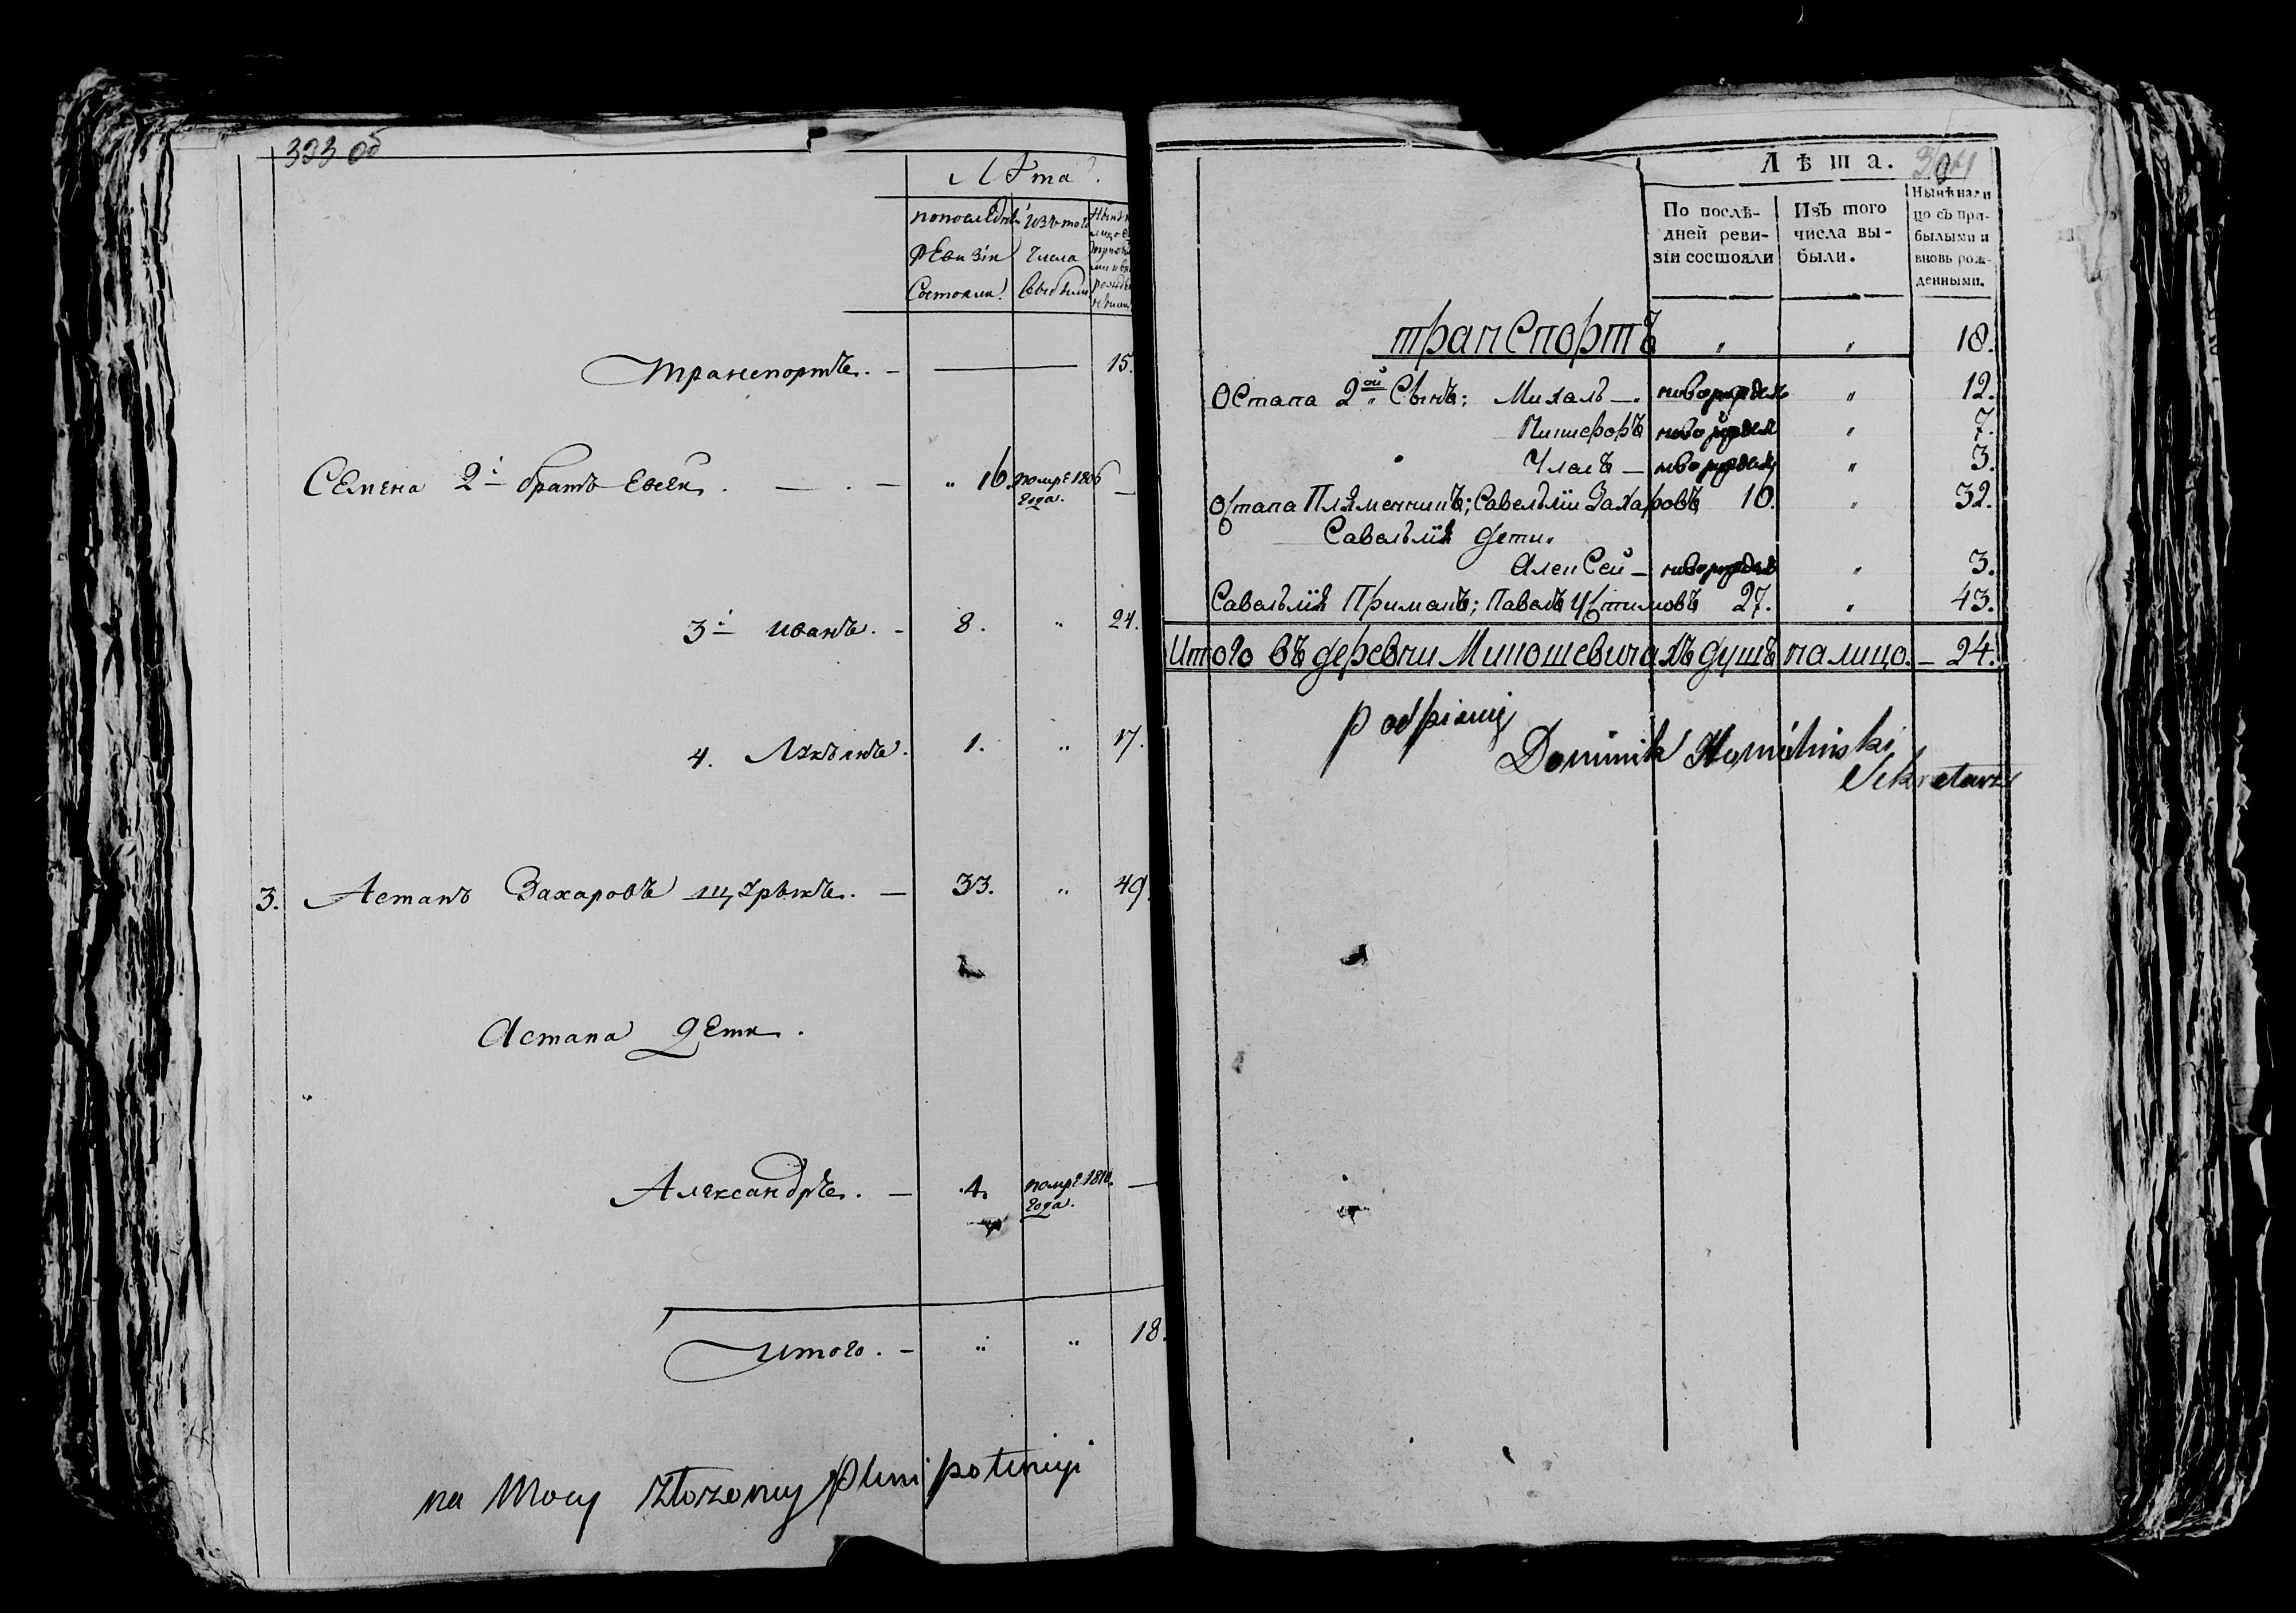 393 об
Лѣта.
по послѣдней Изъ того
ревизіи числа
состояли. выбыли
Транспортъ. — 15.
Семена 2й братъ Евсей. — " 16. помре 1806 года. —
3й Иванъ. — 8. " 24.
4. 1. " 17.
3. Астапъ Захаровъ — 33. " 49.
Астапа дети.
Александръ. — 4. помре 1810. года. —
Итого. — " " 18.
na mocy złożony plenipotencyi
Лѣта.
По послѣ-
дней реви-
зіи состояли
Изъ того
числа вы-
были.
Нынѣ нали
цо съ при-
былыми и
вновь рож-
денными.
транспортъ " " 18.
Остапа 2ой Сынъ; Михалъ —. новорожден " 12.
Никифоръ новорожден " 7.
Уласъ — новорожден " 3.
Остапа Пляменникъ; Савелълiи Захаровъ 16. " 32.
Савелълiя дети.
Алексей — новорожден " 3.
Савелълiя Примакъ; Павелъ Устимовъ 27. " 43.
Итого въ деревни Миношевичахъ душъ налицо. — 24.
podpisuię
Dominik
Sekretarz